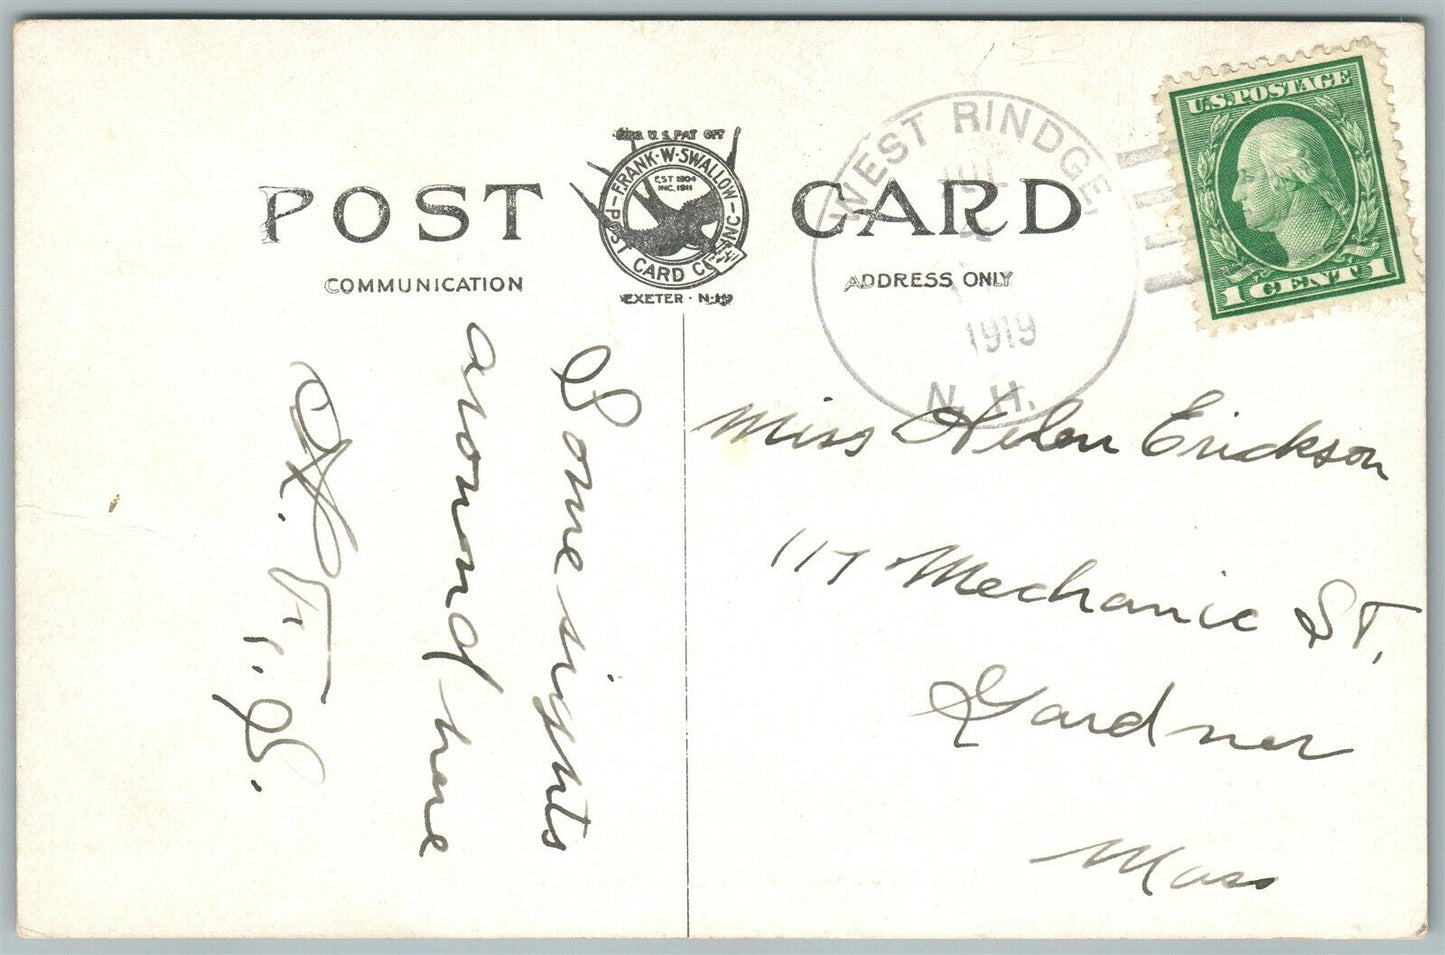 POST CARD
REG. U.S. PAT. OFF.
FRANK·W·SWALLOW
EST 1904
INC. 1911
POST CARD CO. INC
EXETER · N.H.
COMMUNICATION
ADDRESS ONLY
WEST RINDGE,
JUL
1919
N. H.
U.S. POSTAGE
1 CENT 1
Some sights
around here
Miss Helen Erickson
117 Mechanic St,
Gardner
Mass